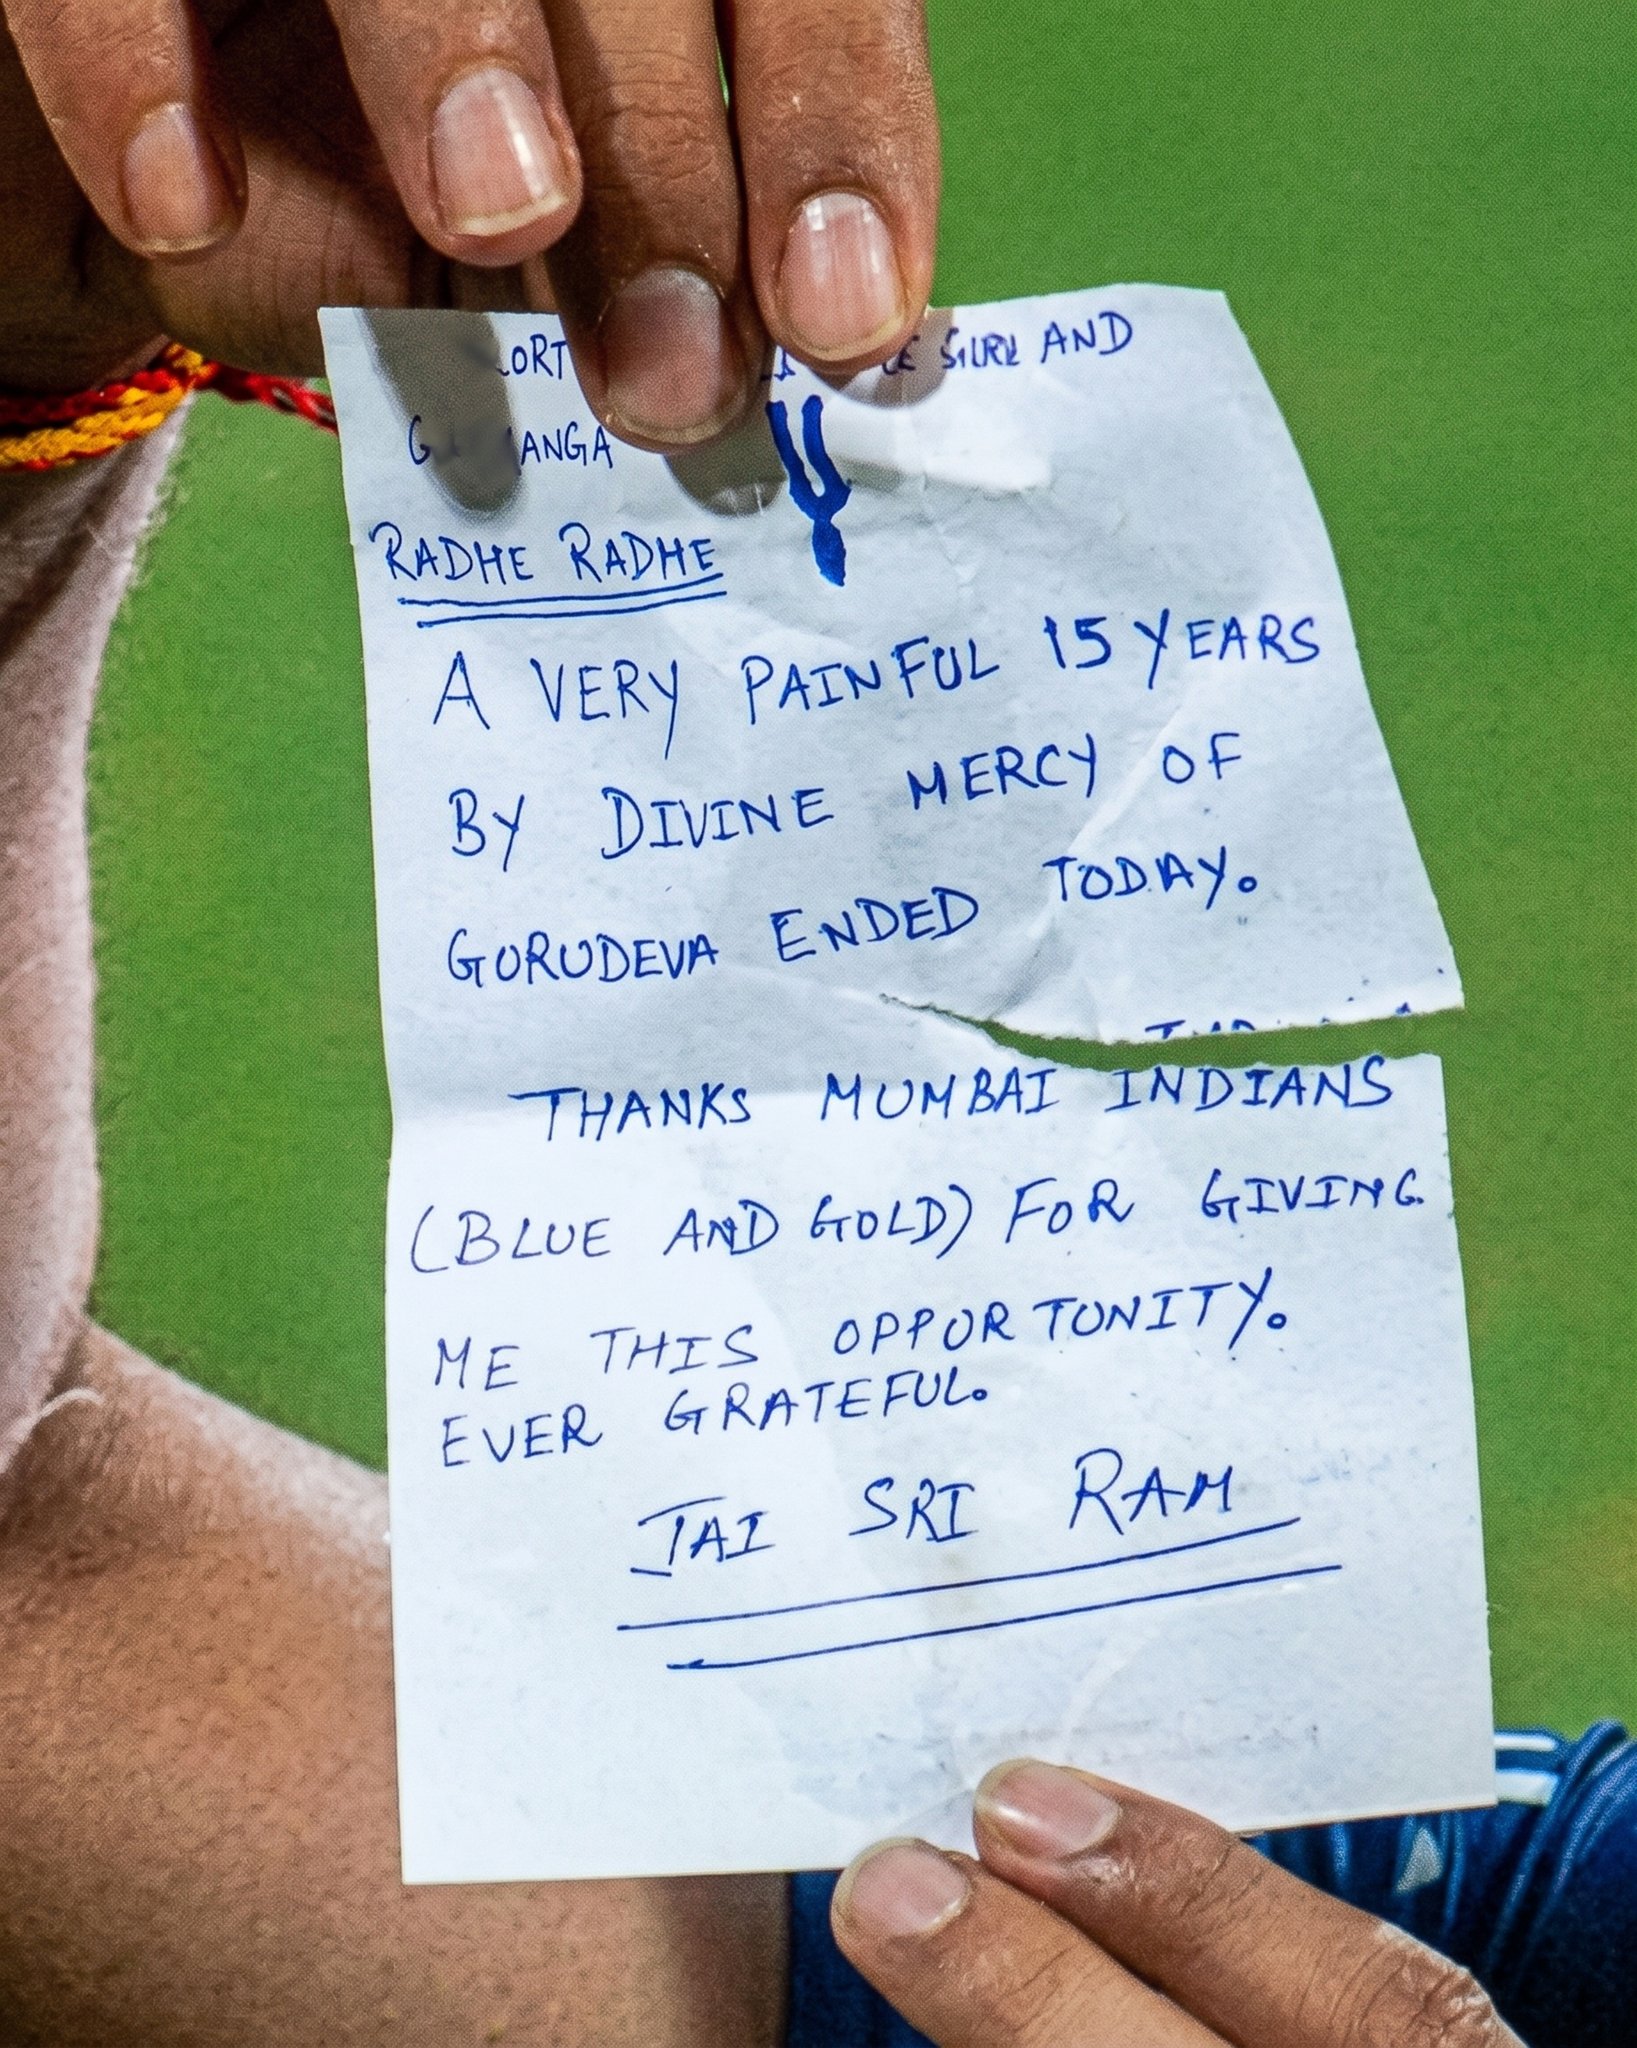 AND
RADHE RADHE
A VERY PAINFUL 15 YEARS
BY DIVINE MERCY OF
GURUDEVA ENDED TODAY.
THANKS MUMBAI INDIANS
(BLUE AND GOLD) FOR GIVING
ME THIS OPPORTUNITY.
EVER GRATEFUL.
JAI SRI RAM